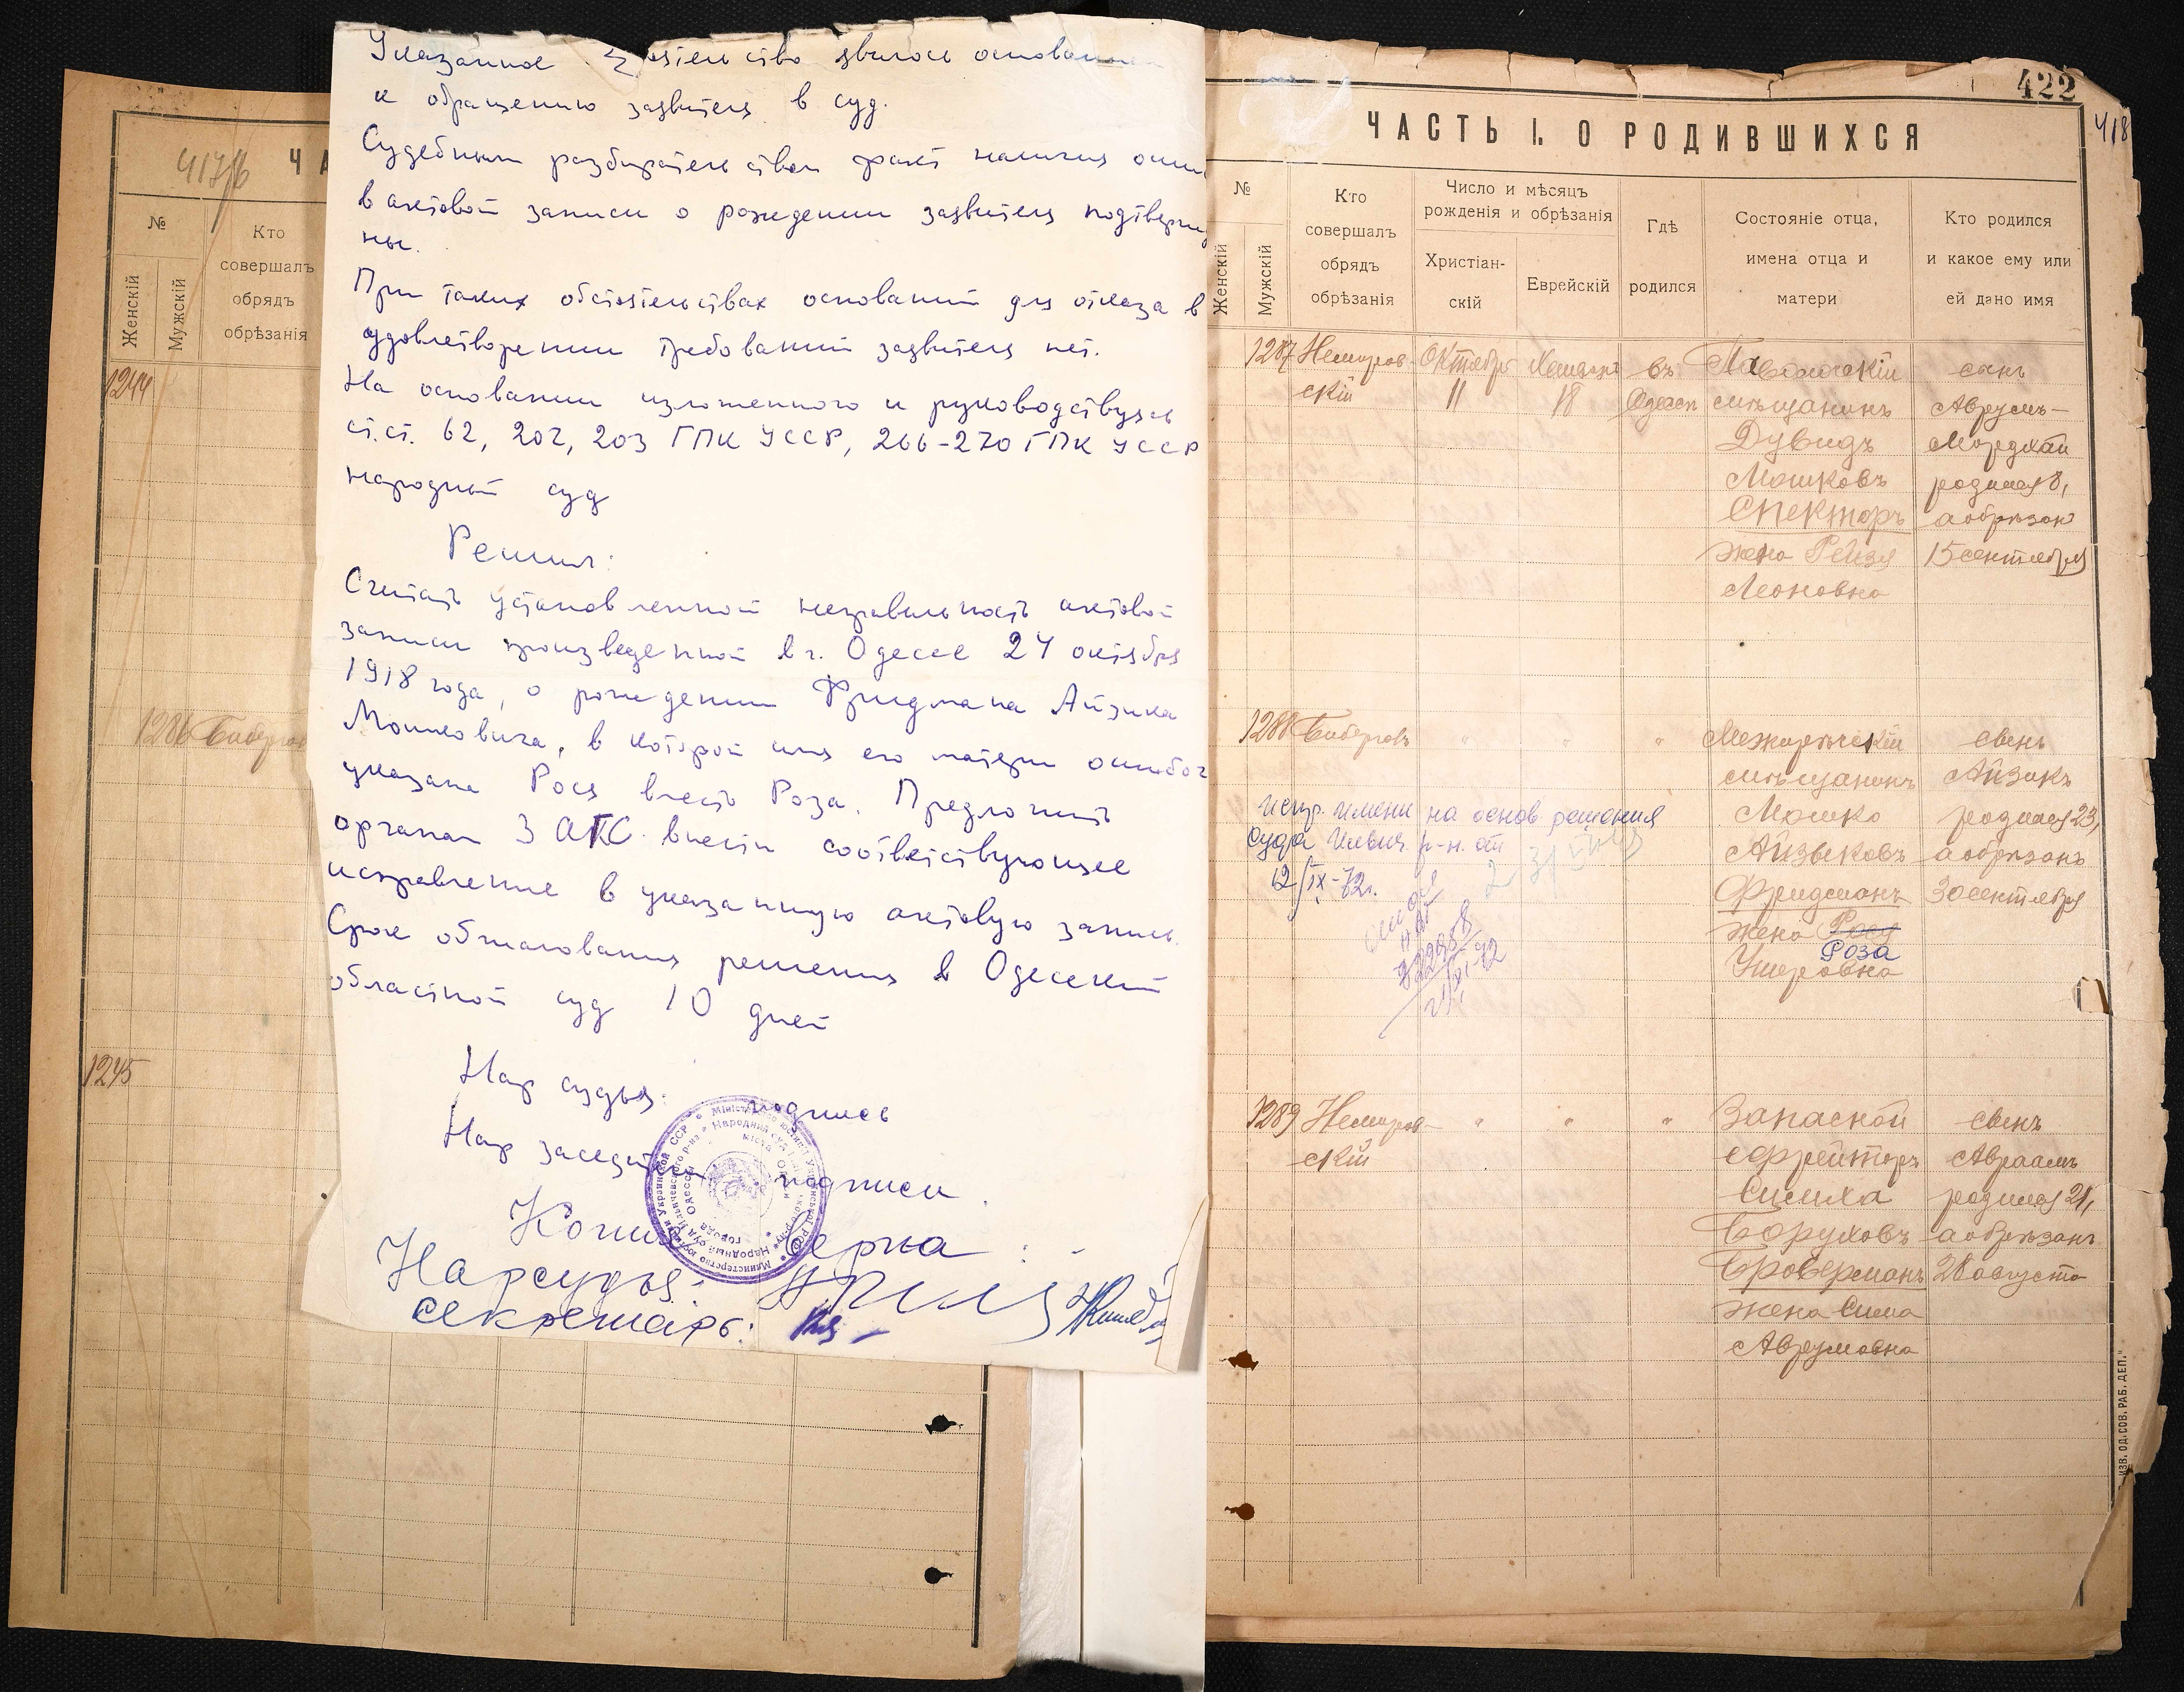 417б
Ч А
№
Женскій
Мужскій
Кто
совершалъ
обрядъ
обрѣзанія
1244
1286
1245
Указанное явилось основанием
к обращению заявителя в суд.
Судебным разбирательством факт наличия оши
в актовой записи о рождении заявителя подтвержд
ны.
При таких обстоятельствах оснований для отказа в
удовлетворении требований заявителя нет.
На основании изложенного и руководствуясь
ст.ст. 62, 202, 203 ГПК УССР, 266-270 ГПК УССР
народный суд
Решил:
Считать установленной неправильность актовой
записи произведенной в г. Одессе 24 октября
1918 года, о рождении Фридмана Айзика
Мошковича, в которой имя его матери ошибоч
указано Рося вместо Роза. Предложить
органам ЗАГС внести соответствующее
исправление в указанную актовую запись.
Срок обжалования решения в Одесский
областной суд 10 дней
Нар судья: подпись
Нар заседатели подписи.
Копия верна:
Нарсудья:
секретарь:
422
418
ЧАСТЬ I. О РОДИВШИХСЯ
№
Женскій
Мужскій
Кто
совершалъ
обрядъ
обрѣзанія
Число и мѣсяцъ
рожденія и обрѣзанія
Христіан-
скій
Еврейскій
Гдѣ
родился
Состояніе отца,
имена отца и
матери
Кто родился
и какое ему или
ей дано имя
1287 Немиров- Октября въ сынъ
скій 11 18 Одессѣ мѣщанинъ Аврумъ-
Дувидъ Мордхай
Мошковъ родился 8,
Спекторъ а обрѣзанъ
жена Рейзя 15 сентября
Леоновна
1288 " " " Межирѣчскій сынъ
мѣщанинъ Айзикъ
Мошко родился 23,
Айзиковъ а обрѣзанъ
Фридманъ 30 сентября
жена Рося
Роза
Ушеровна
испр. имени на основ. решения
суда Ильич. р-н. от
12/IX-72г.
1289 Немиров- " " " Запасной сынъ
скій ефрейторъ Авраамъ
Симха родился 21,
Боруховъ а обрѣзанъ
Броверманъ 28 августа
жена Сима
Аврумовна
ИЗВ. ОД. СОВ. РАБ. ДЕП."